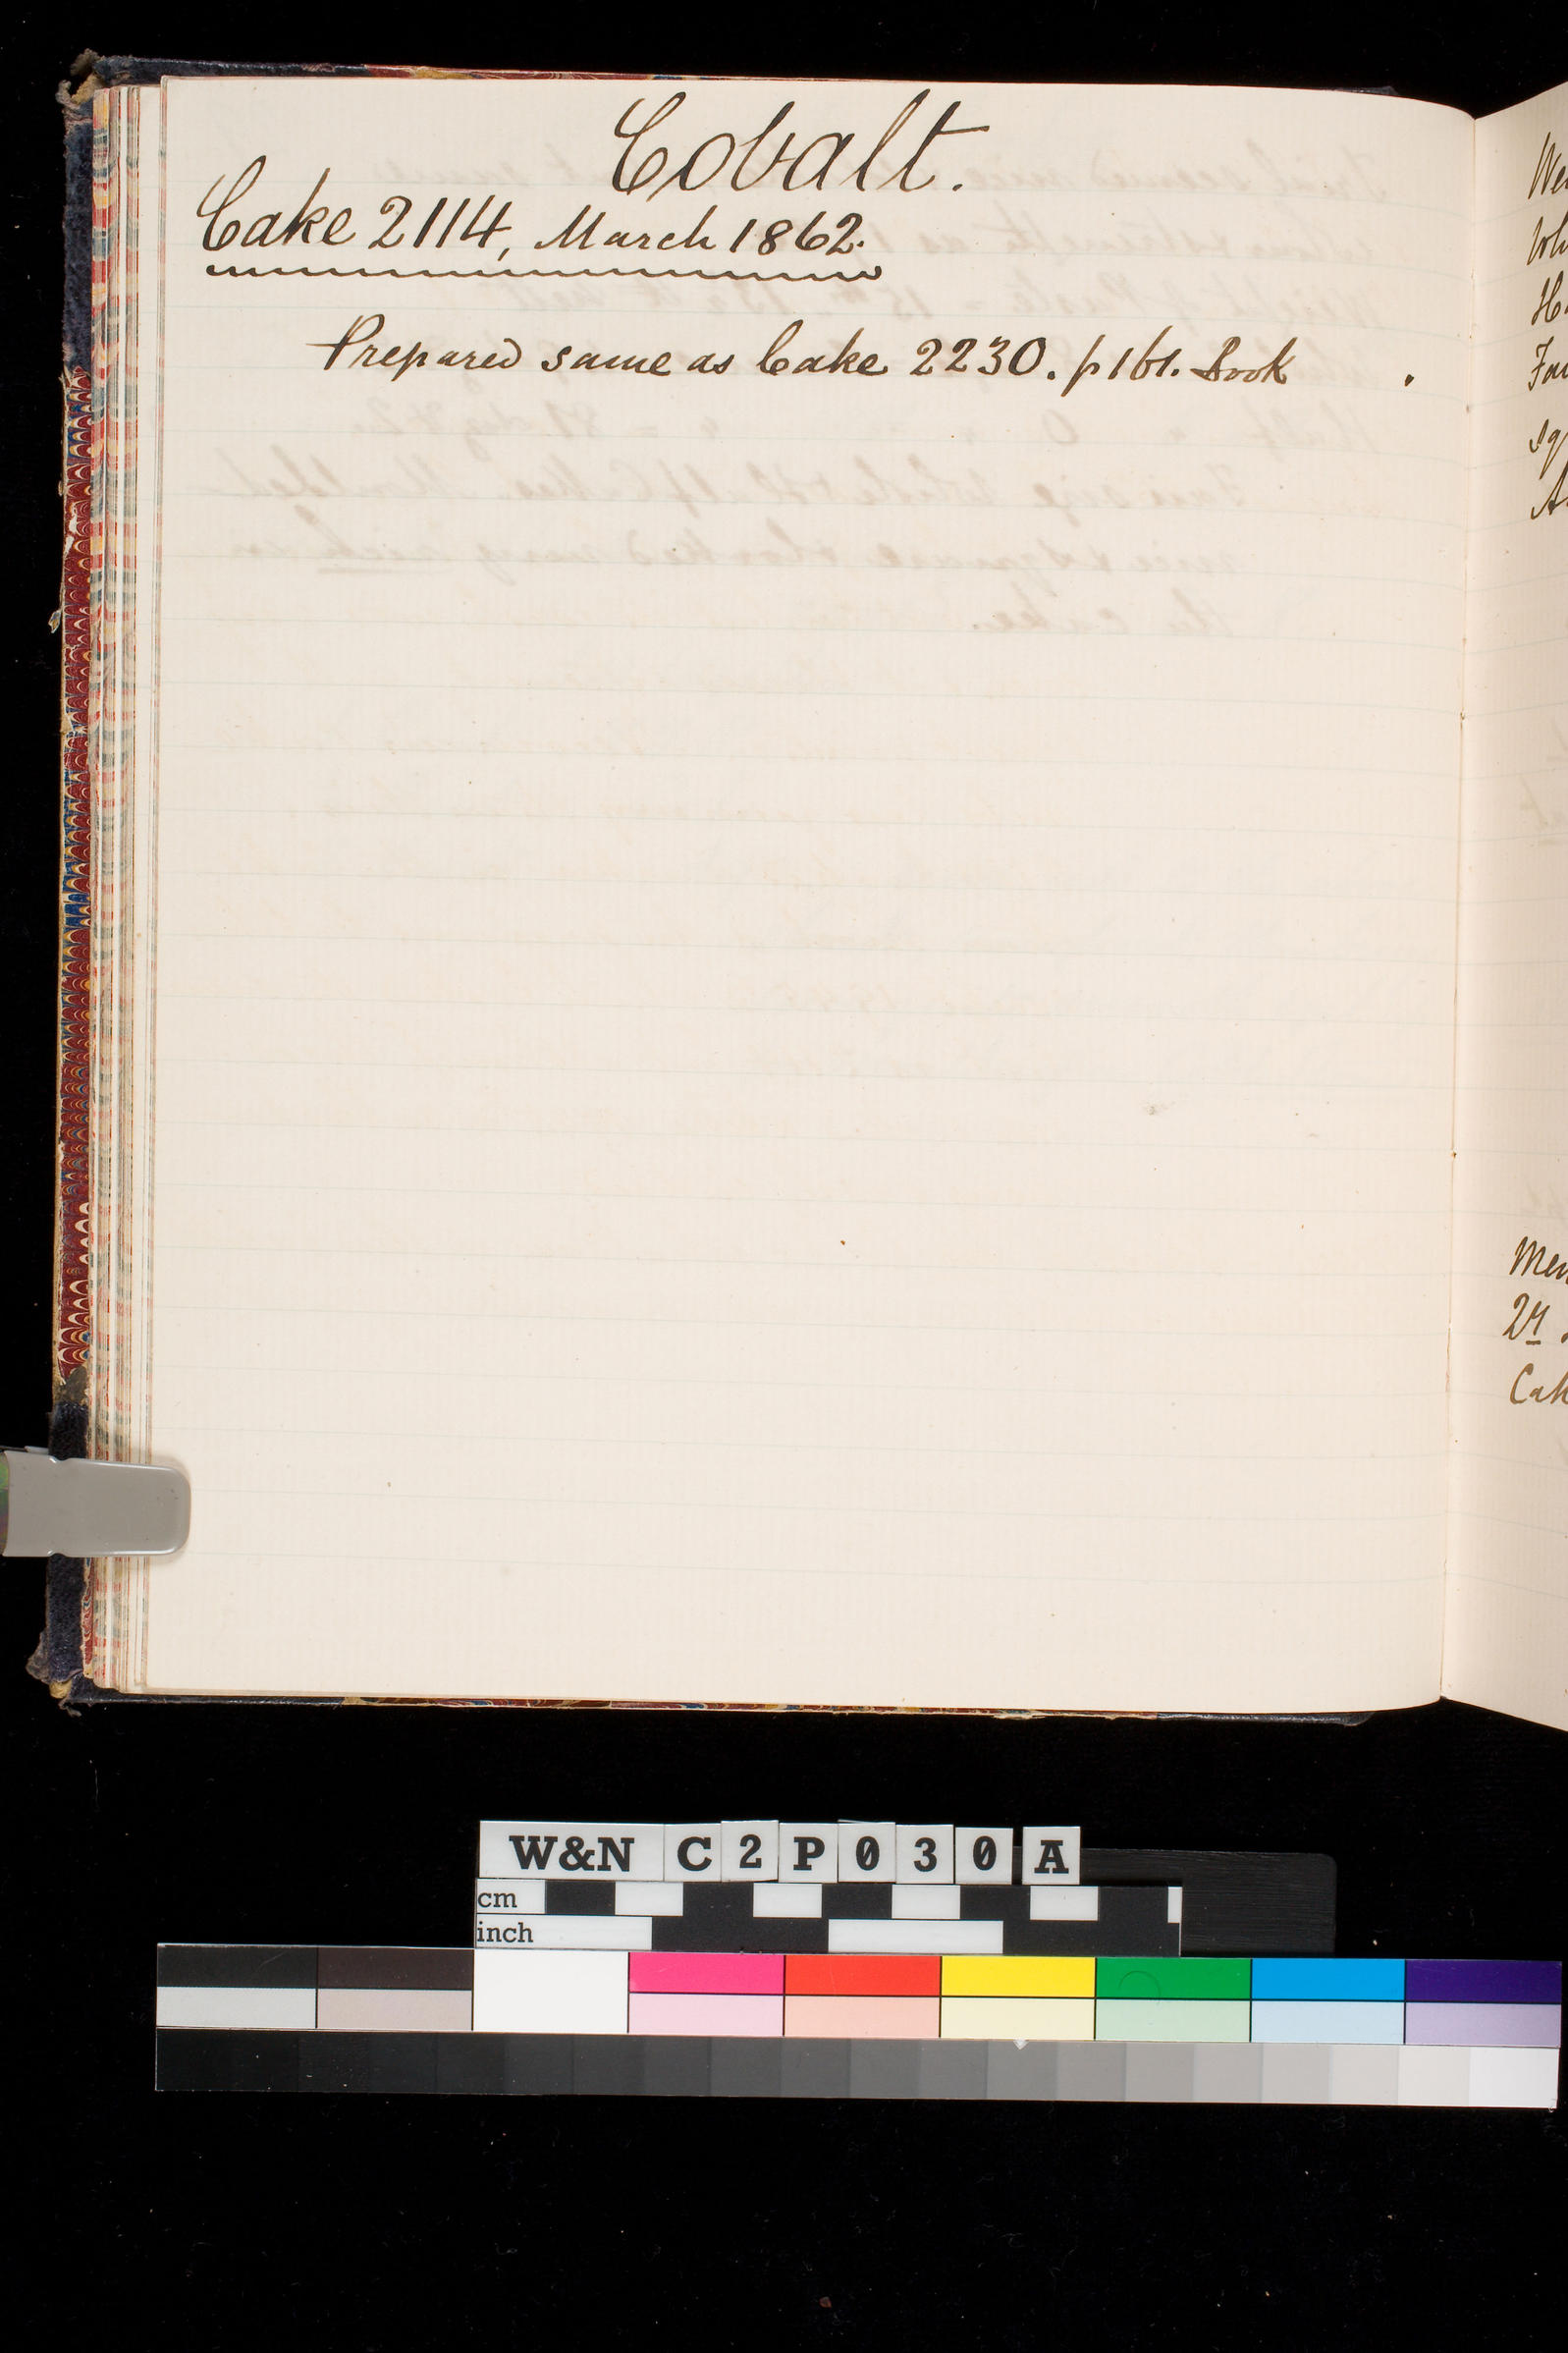 Cobalt.
Cake 2114, March 1862.
Prepared same as Cake 2230. p161. Book .
We
Wh
H
Fa
sq
A
Mem
Cak
W&N C2P030A
cm
inch